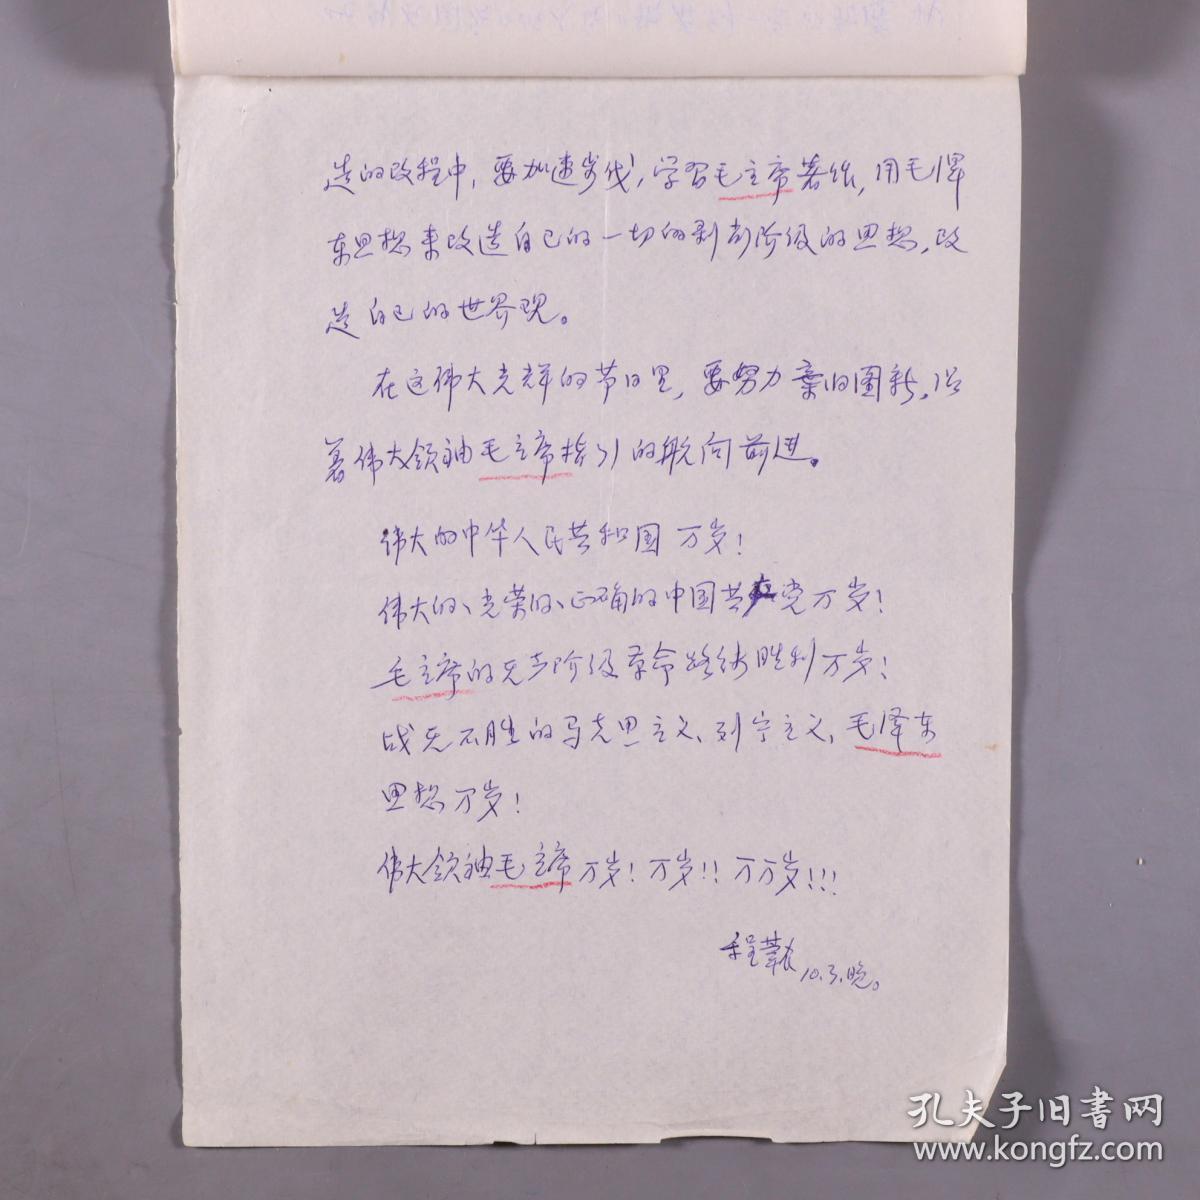 造的改程中，要加速步伐，学习毛主席著作，用毛泽
东思想来改造自己的一切的剥削阶级的思想，改
造自己的世界观。
在这伟大光辉的节日里，要努力弃旧图新，沿
着伟大领袖毛主席指引的航向前进。
伟大的中华人民共和国万岁！
伟大的、光荣的、正确的中国共产党万岁！
毛主席的无产阶级革命路线胜利万岁！
战无不胜的马克思主义、列宁主义、毛泽东
思想万岁！
伟大领袖毛主席万岁！万岁！！万万岁！！！
程 10.3.晚。
孔夫子旧書网
www.kongfz.com